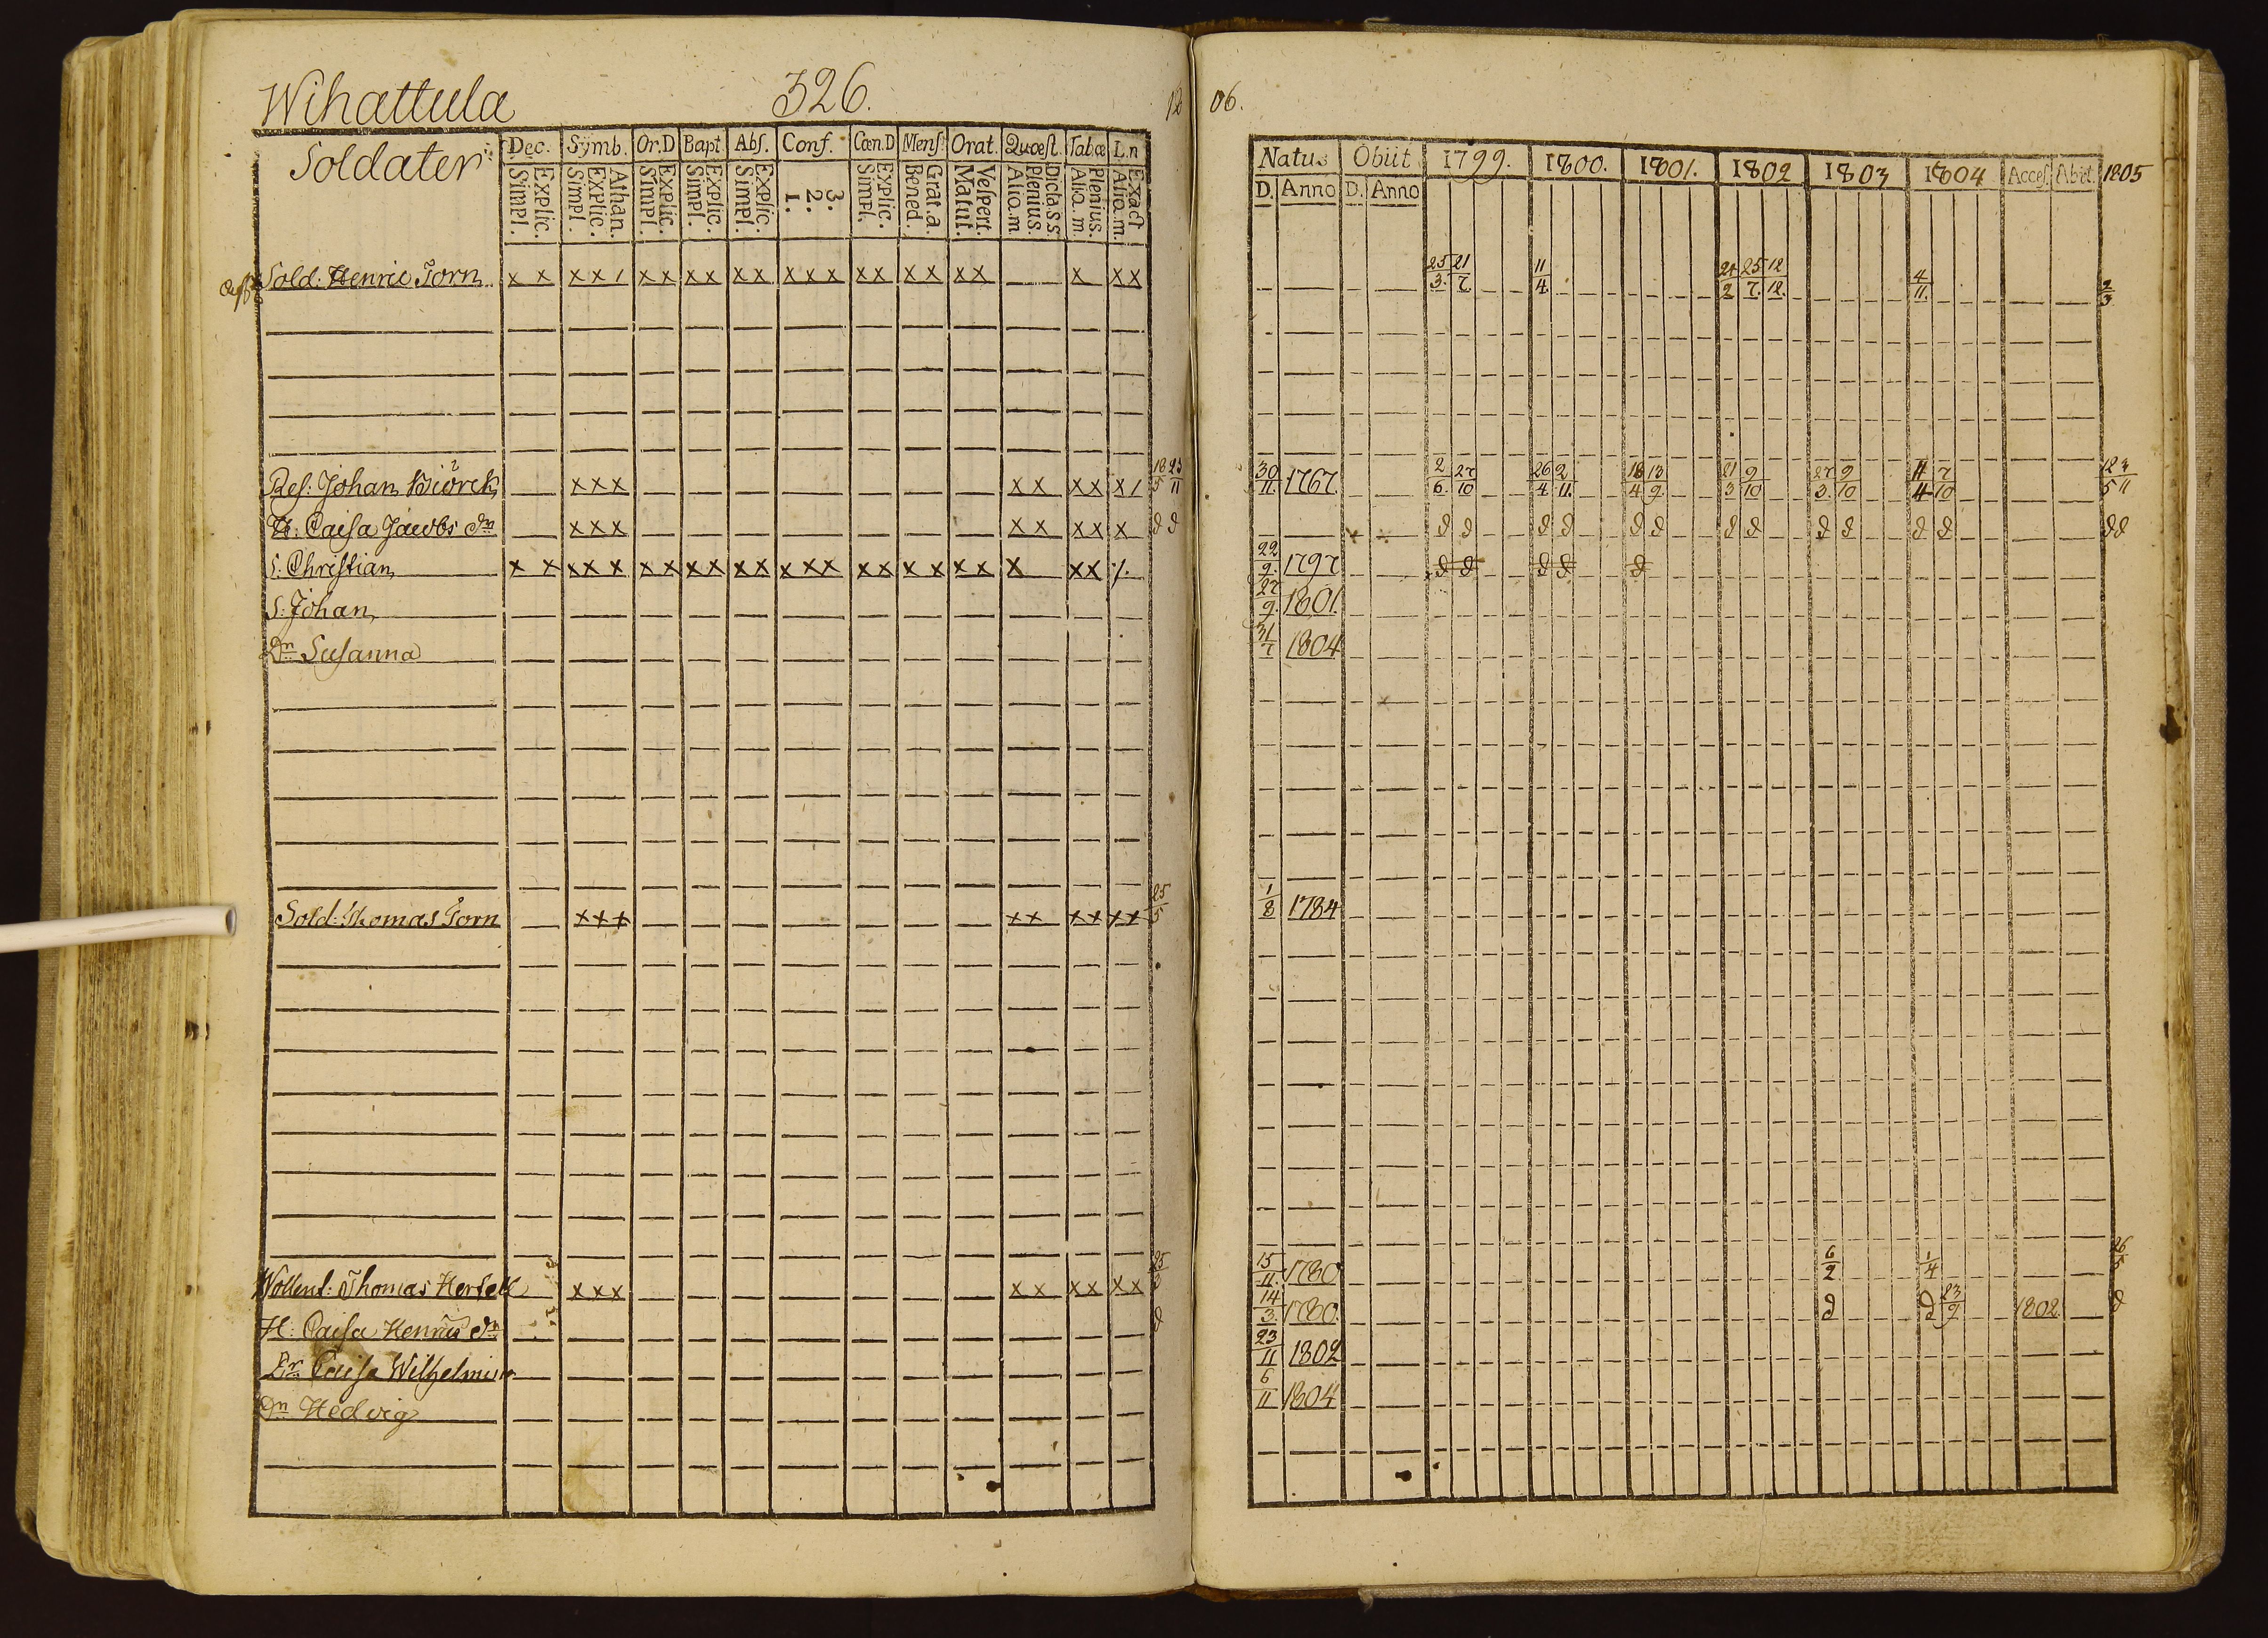 Wihattula 326. 18 06.
Soldater
Dec. Symb. Or.D Bapt. Abs. Conf. Cœn.D Mens. Orat. Quæst. Tab.œ L.n
Explic. Simpl. Athan. Explic. Simpl. Explic. Simpl. Explic. Simpl. Explic. Simpl. 3. 2. 1. Explic. Simpl. Grat.a. Bened. Vespert. Matut. Dicta S S Plenius. Alio.m Plenius. Alio.m. Exact Alio.m.
Natus Obiit 1799. 1800. 1801. 1802 1803 1804 Acces. Abiit. 1805
D. Anno D. Anno
Sold: Henric Torn x x x x / x x x x x x x x x x x x x x x x x x 25/3. 21/7. 11/4. 24/2 25/7. 12/12. 4/11. 2/3
Res: Johan Biörck x x x x x x x x / 18/5 23/11 30/11. 1767 2/6. 27/10 26/4. 2/11. 18/4 13/9. 21/3 9/10 27/3. 9/10 11/4 7/10
H: Caisa Jacobs dr x x x x x x x x d d d d d d d d d d d d d d d d
S: Christian x x x x x x x x x x x x x x x x x x x x x x x x 22/9. 1797 d d d d d
S: Johan 27/9. 1801.
Dr Susanna 31/7 1804
Sold: Thomas Torn x x x x x x x x x 25/5 1/8 1784
Thomas x x x x x x x x x 15/11. 1780 6/2 1/4 26/5
H: Caisa Henrics dr d 14/3. 1780. d d 23/9 1802 d
Dr Caisa Wilhelmina 23/11 1802
Dr Hedvig 6/11 1804